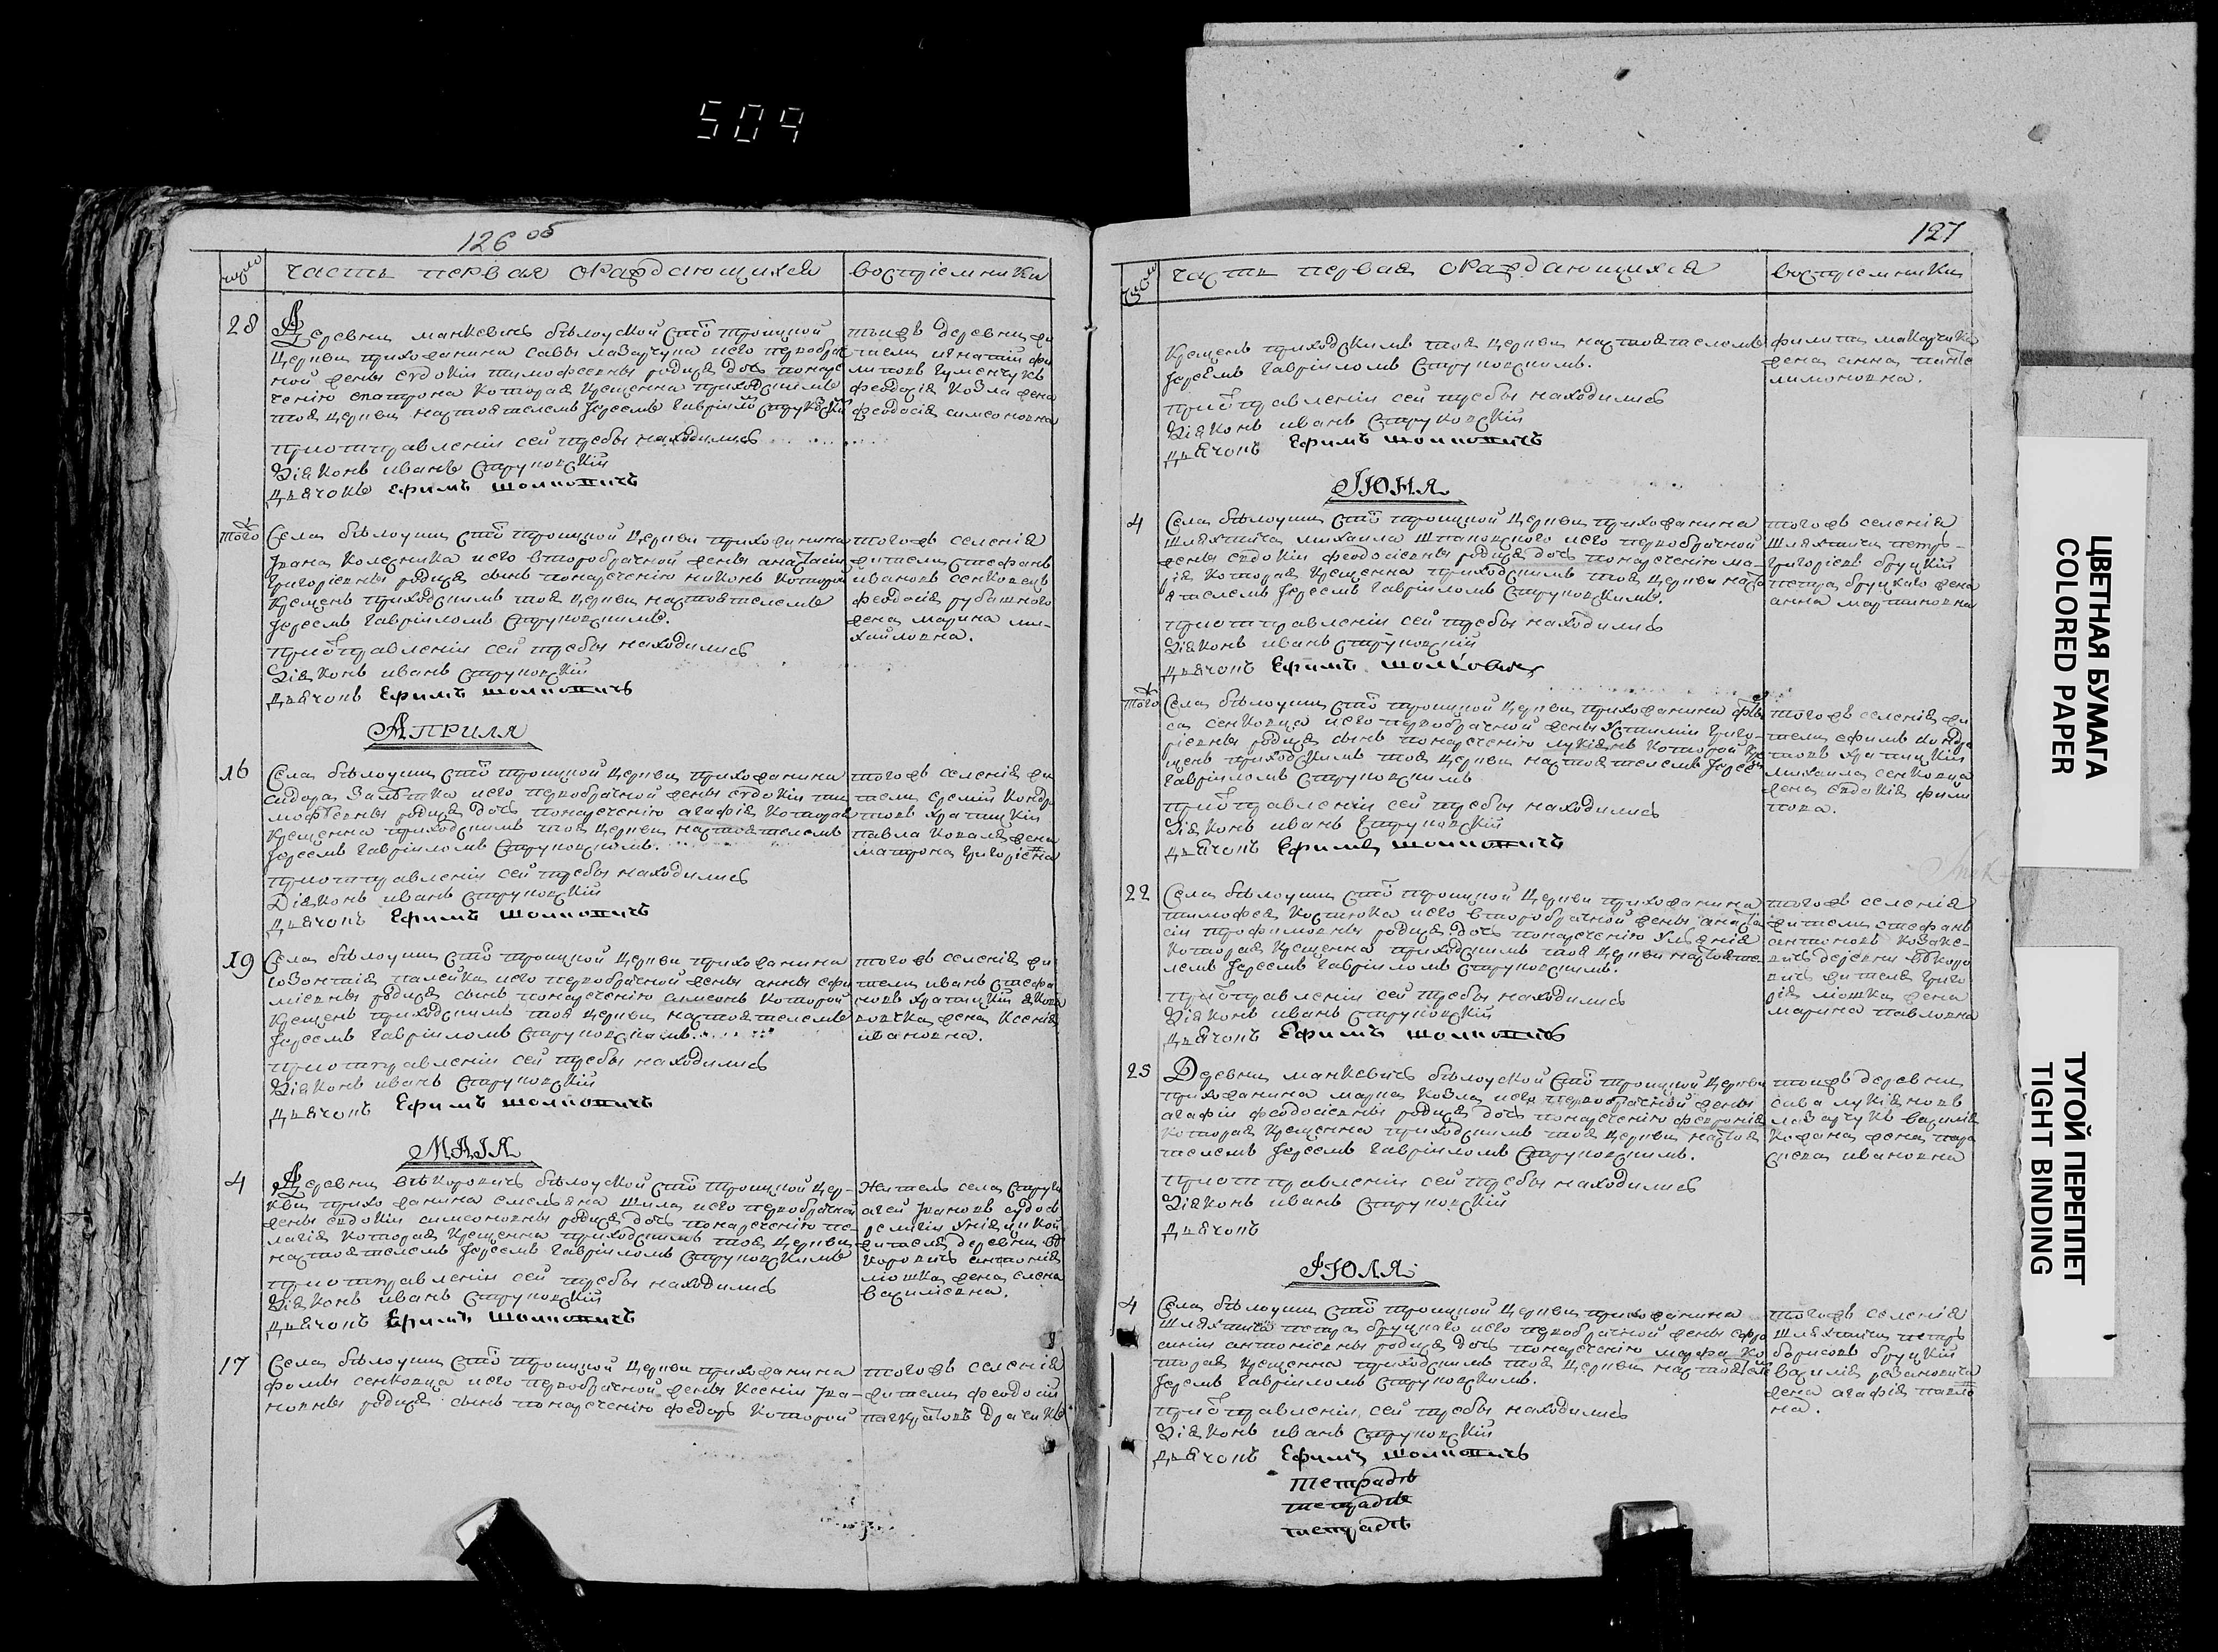 509
126 об
число
часть первая о раждающихся
воспріемники
28
Деревни манкевичъ бѣлоуской стой троицкой
Церкви прихожанина савы лазарчука и его первобрач
ной жены евдокіи тимофеевны родися дочь по нарѣ
ченію матрона которая крещенна приходскимъ
тоя Церкви настоятелемъ Іереемъ Гавріиломъ струковскимъ
при отправленіи сей требы находились
Діаконъ иванъ струковскій
дьячокъ Ефимъ
тоиже деревни жи
тели игнатій фи
липовъ Гуменчукъ
феодора козла жена
феодосія симеоновна
того
Села бѣлоуши стой троицкой Церкви прихожанина
Ивана Колесника и его второбрачной жены анастасіи
григоріевны родися сынъ по нареченію никонъ которой
крещенъ приходскимъ тоя Церкви настоятелемъ
Іереемъ Гавріиломъ струковскимъ.
при отправленіи сей требы находились
Діаконъ иванъ струковскій
дьячокъ Ефимъ
тогожъ селенія
жители стефанъ
ивановъ сенковецъ
феодосія рубашного
жена марина ми-
хайловна.
Априля
16
Села бѣлоуши стой троицкой Церкви прихожанина
сидора и его первобрачной жены евдокіи ти
мофѣевны родися дочь по нареченію агафія которая
крещенна приходскимъ тоя Церкви настоятелемъ
Іереемъ Гавріиломъ струковскимъ.
при отправленіи сей требы находились
Діаконъ иванъ струковскій
дьячокъ Ефимъ
тогожъ селенія жи
тели еремій кондра
товъ храпицкій
павла коваля жена
матрона григоріевна
19
Села бѣлоуши стой троицкой Церкви прихожанина
созонтія палейка и его первобрачной жены анны ефи
міевны родися сынъ по нареченію симеонъ которой
крещенъ приходскимъ тоя Церкви настоятелемъ
Іереемъ Гавріиломъ струковскимъ.
при отправленіи сей требы находились
Діаконъ иванъ струковскій
дьячокъ Ефимъ
тогожъ селенія жи
тели иванъ стефа
новъ храпицкій
жена ксенія
ивановна.
МАІЯ
4
Деревни бѣлоуской стой троицкой Цер-
кви прихожанина емельяна шила и его первобрачной
жены евдокіи симеоновны родися дочь по нареченію пе-
лагія которая крещенна приходскимъ тоя Церкви
настоятелемъ Іереемъ Гавріиломъ струковскимъ
при отправленіи сей требы находились
Діаконъ иванъ струковскій
дьячокъ Ефимъ
Житель села
ивановъ
религіи уніяцкой
жителя деревни
антонія
мошка жена елена
василіевна.
17
Села бѣлоуши стой троицкой Церкви прихожанина
фомы сенковца и его первобрачной жены ксеніи ива-
новны родися сынъ по нареченію федоръ которой
тогожъ селенія
жители феодосій
панкратовъ
127
число
часть первая о раждающихся
воспріемники
крещенъ приходскимъ тоя Церкви настоятелемъ
Іереемъ Гавріиломъ струковскимъ.
при отправленіи сей требы находились
Діаконъ иванъ струковскій
дьячокъ Ефимъ
филипа макарчика
жена анна панте
лимоновна.
ІЮНЯ
4
Села бѣлоуши стой троицкой Церкви прихожанина
шляхтича михаила шпаковского и его первобрачной
жены евдокіи феодосіевны родися дочь по нареченію ма-
рія которая крещенна приходскимъ тоя Церкви насто
ятелемъ Іереемъ Гавріиломъ струковскимъ.
при отправленіи сей требы находились
Діаконъ иванъ струковскій
дьячокъ Ефимъ
тогожъ селенія
шляхтичи петръ
григоріевъ бруцкій
петра бруцкаго жена
анна мартиновна
того
Села бѣлоуши стой троицкой Церкви прихожанина
сенковца и его первобрачной жены устиніи григо-
ріевны родися сынъ по нареченію лукіянъ которой кре
щенъ приходскимъ тоя Церкви настоятелемъ Іереемъ
Гавріиломъ струковскимъ
при отправленіи сей требы находились
Діаконъ иванъ струковскій
дьячокъ Ефимъ
тогожъ селенія жи
тели ефимъ кондра
товъ храпицкій
михаила сенковца
жена евдокія фили
пова.
22
Села бѣлоуши стой троицкой Церкви прихожанина
тимофея костюка и его второбрачной жены анаста
сіи трофимовны родися дочь по нареченію ульянія
которая крещенна приходскимъ тоя Церкви настояте
лемъ Іереемъ Гавріиломъ струковскимъ.
при отправленіи сей требы находились
Діаконъ иванъ струковскій
дьячокъ Ефимъ
тогожъ селенія
жители стефанъ
антоновъ козаке-
вичъ деревни
жителя григо
рія мошка жена
марина павловна
25
Деревни манкевичъ бѣлоуской стой троицкой Церкви
прихожанина марка козла и его первобрачной жены
агафіи феодосіевны родися дочь по нареченію февронія
которая крещенна приходскимъ тоя Церкви настоя
телемъ Іереемъ Гавріиломъ струковскимъ.
при отправленіи сей требы находились
Діаконъ иванъ струковскій
дьячокъ
тоижъ деревни
сава лукіяновъ
лазарчукъ василія
жена пара
скева ивановна
ІЮЛЯ
4
Села бѣлоуши стой троицкой Церкви прихожанина
шляхтича петра бруцкаго и его первобрачной жены евфро
синіи антоніевны родися дочь по нареченію марфа ко
торая крещенна приходскимъ тоя Церкви настоятелемъ
Іереемъ Гавріиломъ струковскимъ.
при отправленіи сей требы находились
Діаконъ иванъ струковскій
дьячокъ Ефимъ
тогожъ селенія
шляхтичи петръ
борисовъ бруцкій
василія
жена агафія павло
на.
тетрадь
тетрадь
тетрадь
ЦВЕТНАЯ БУМАГА
COLORED PAPER
ТУГОЙ ПЕРЕПЛЕТ
TIGHT BINDING